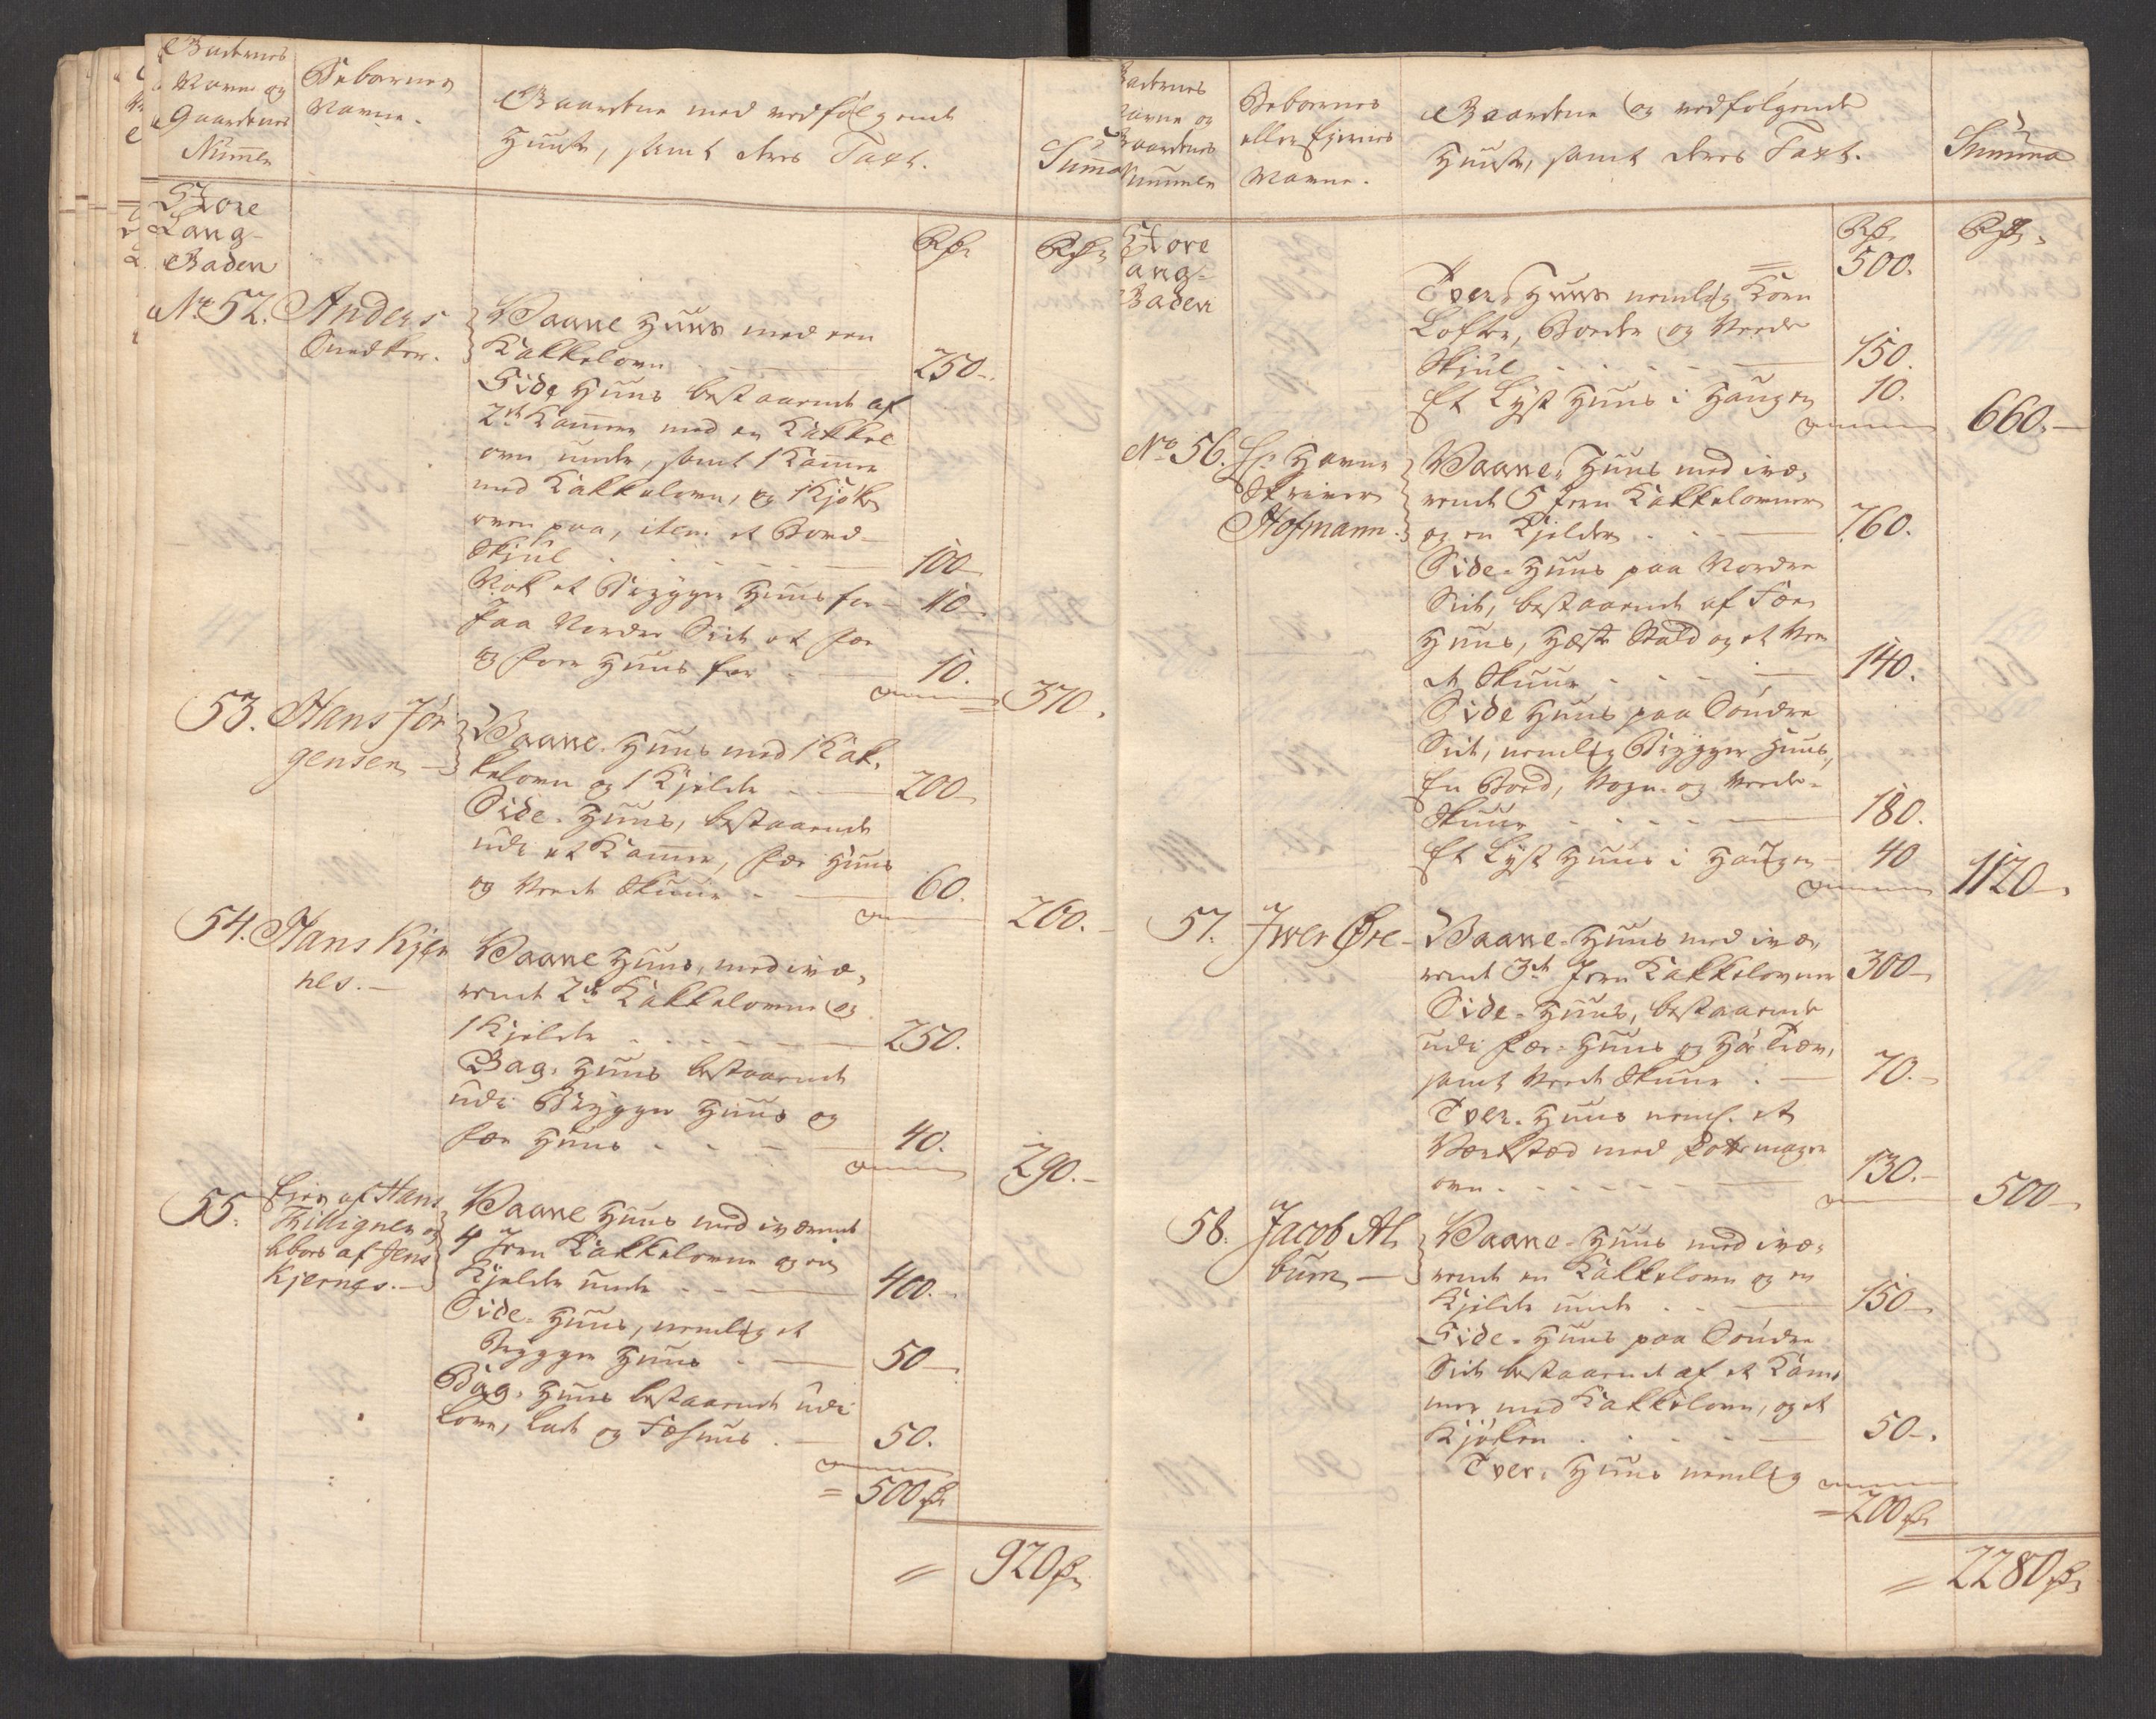 Gadernes
Navne og
Gaardenes
Numer
Beboernes
Navne.
Gaardene med vedfølgende
Huuse, samt deres Taxt.
Summa
Store
Lang-
Gaden
Rdr
Rdr
No 52. Anders
Snedker.
Vaane Huus med een
Kakkelovn - 250.
Side Huus bestaaende af
2de Kamre med en Kakkel
ovn under, samt 1 Kamer
med Kakkelovn, og 1 Kjøk
oven paa, item et Bord-
Skjul - 100
Nok et Brygger Huus for - 10
Paa Nordre Side et fæ
og Foer Huus for - 10.
370.
53. Hans Jør
gensen
Vaane Huus med 1 Kak,
kelovn og 1 Kjelder - 200
Side-Huus, bestaaende
udi et Kamer, fæe Huus
og Veed Skuur - 60.
260.
54. Hans Kjer
nes.
Vaane Huus, med ivæ,
rende 2de Kakkelovne og
1 Kjelder - 250.
Bag-Huus bestaaende
udi Brygger Huus og
fæe Huus - 40.
290.-
55. Ejes af Hans
og
af Jens
Kjernes.
Vaane Huus med iværende
4 Jern Kakkelovne og en
Kjelder under - 400.
Side-Huus, nemlig et
Brygger Huus - 50
Bag-Huus bestaaende udi
Love, Lade og Fæhuus - 50.
= 500 rdr
= 920 rdr
Gadernes
Navne og
Gaardenes
Numer
Beboernes
eller Ejernes
Navne.
Gaardene og vedfølgende
Huuse, samt deres Taxt.
Summa
Store
Lang-
Gaden
Rdr
Rdr
= 500.
Tver-Huus nemlig Korn
Lofter, Border og Veede
Skjul - 150.
Et Lyst Huus i Haugen 10.
660.-
No 56. Hr Havne
Skriver
Hofmann.
Vaane-Huus med ivæ,
rende 5 Jern Kakkelovner
og en Kjelder - 760.
Side-Huus paa Nordre
Side, bestaaende af Fæe
Huus, Hæste Stald og et Vee
de Skuur - 140.
Side Huus paa Søndre
Side, nemlig Brygger Huus,
En Bord, Vogn- og Veede-
Skuur - 180.
Et Lyst Huus i Haugen - 40
1120
57. Iver Øre
Vaane-Huus med ivæ,
rende 3de Jern Kakkelovne 300
Side-Huus, bestaaende
udi fæe-Huus og Høe Træv,
samt Veede Skuur - 70.
Tver-Huus neml. et
Værksted med Pottemager
ovn - 130.
500
58. Jacob Al
bum
Vaane-Huus med ivæ,
rende en Kakkelovn og en
Kjelder under - 150
Side-Huus paa Søndre
Side bestaaende af et Kam
mer med Kakkelovn, og et
Kjøken - 50.
Tver-Huus nemlig
= 200 rdr
= 2280 rdr